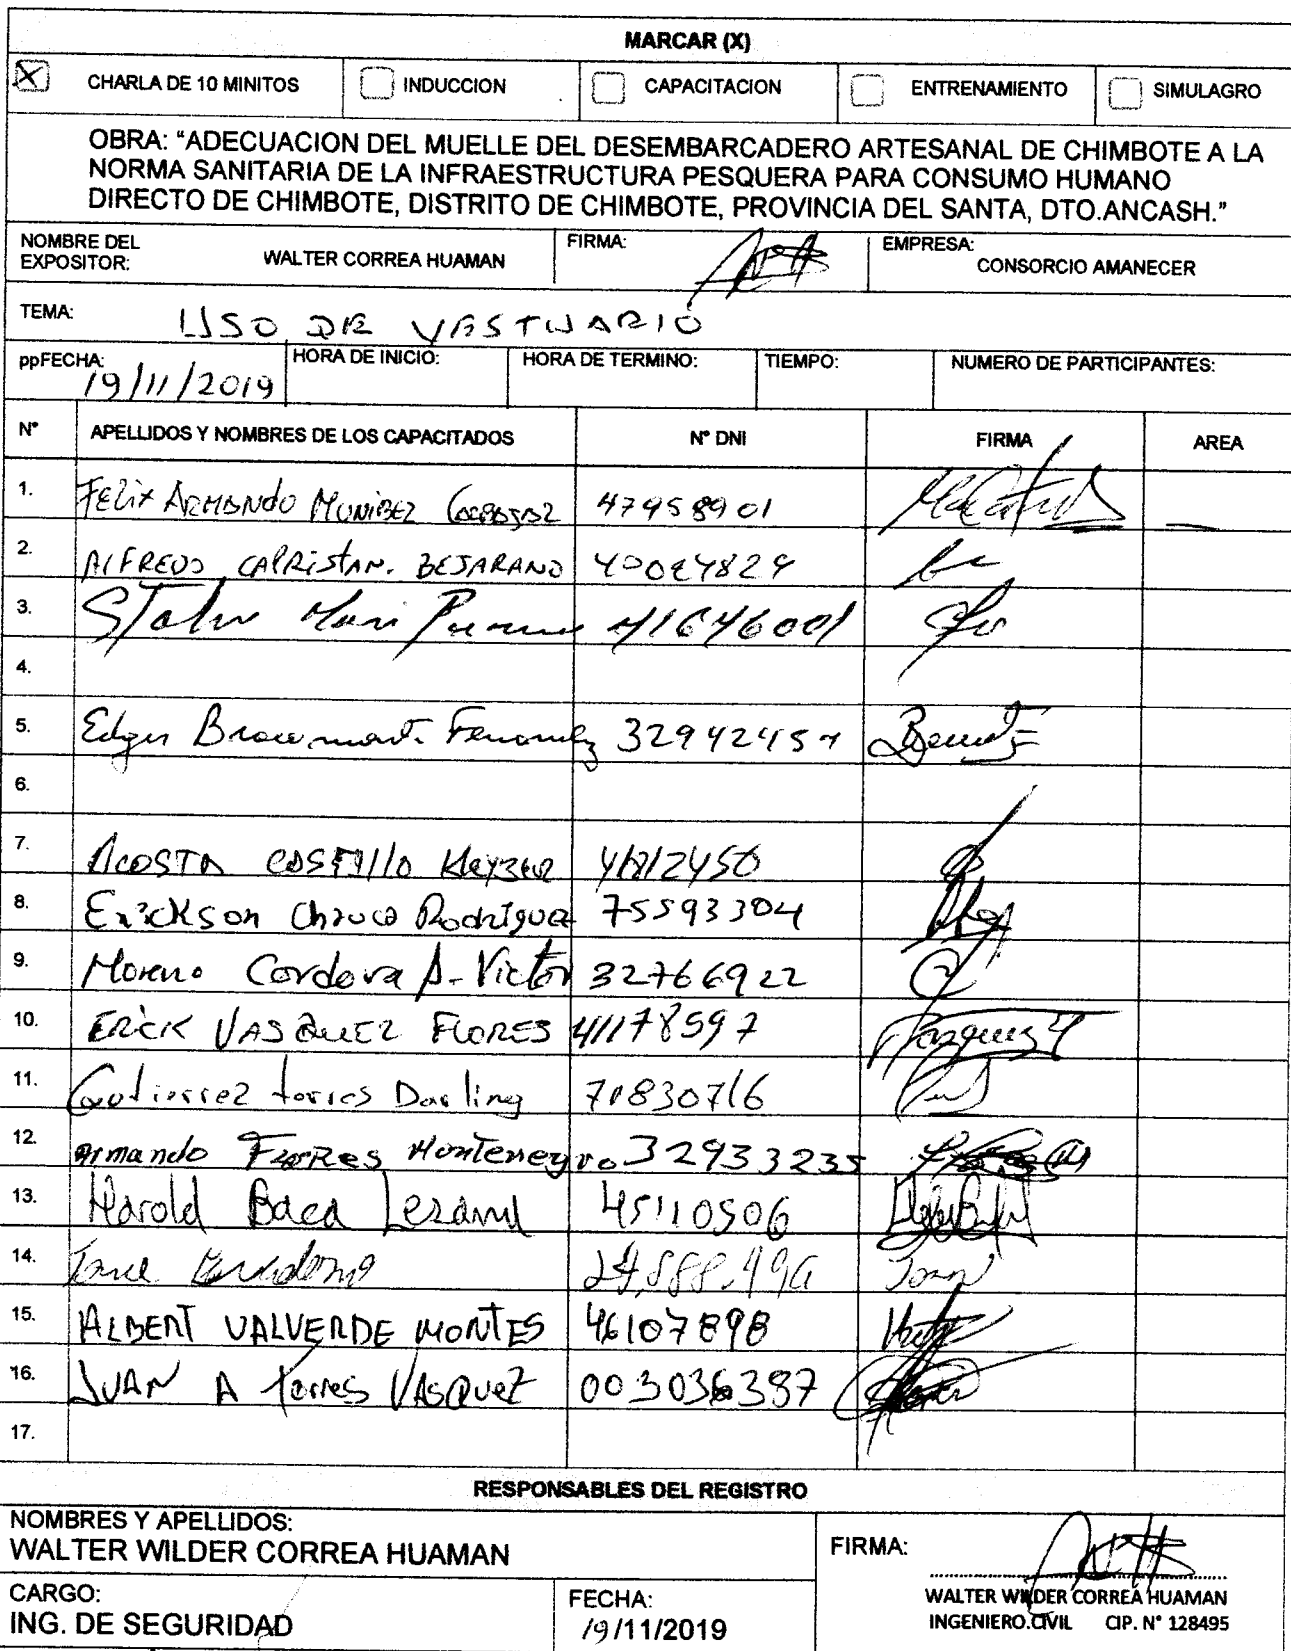 MARCAR (X)
X CHARLA DE 10 MINITOS INDUCCION CAPACITACION ENTRENAMIENTO SIMULAGRO
OBRA: “ADECUACION DEL MUELLE DEL DESEMBARCADERO ARTESANAL DE CHIMBOTE A LA
NORMA SANITARIA DE LA INFRAESTRUCTURA PESQUERA PARA CONSUMO HUMANO
DIRECTO DE CHIMBOTE, DISTRITO DE CHIMBOTE, PROVINCIA DEL SANTA, DTO.ANCASH.”
NOMBRE DEL EXPOSITOR: WALTER CORREA HUAMAN FIRMA: EMPRESA: CONSORCIO AMANECER
TEMA: USO DE VESTUARIO
ppFECHA: 19/11/2019 HORA DE INICIO: HORA DE TERMINO: TIEMPO: NUMERO DE PARTICIPANTES:
N° APELLIDOS Y NOMBRES DE LOS CAPACITADOS N° DNI FIRMA AREA
1. FELIX ARMANDO 47958901
2. ALFREDO BEJARANO
3. 41646001
4.
5. Edgar
6.
7. ACOSTA CASTILLO
8. Erickson Rodriguez 75593304
9. Moreno Cordova A. Victor 32766922
10. ERICK VASQUEZ FLORES 41178597
11. Gutierrez torres Darling 70830716
12. Armando FLORES Montenegro 32933235
13. Harold Baca 45110506
14.
15. ALBERT VALVERDE MONTES 46107898
16. JUAN A Torres VASQUEZ 003036387
17.
RESPONSABLES DEL REGISTRO
NOMBRES Y APELLIDOS:
WALTER WILDER CORREA HUAMAN
FIRMA:
CARGO:
ING. DE SEGURIDAD
FECHA:
19/11/2019
WALTER WILDER CORREA HUAMAN
INGENIERO.CIVIL CIP. N° 128495